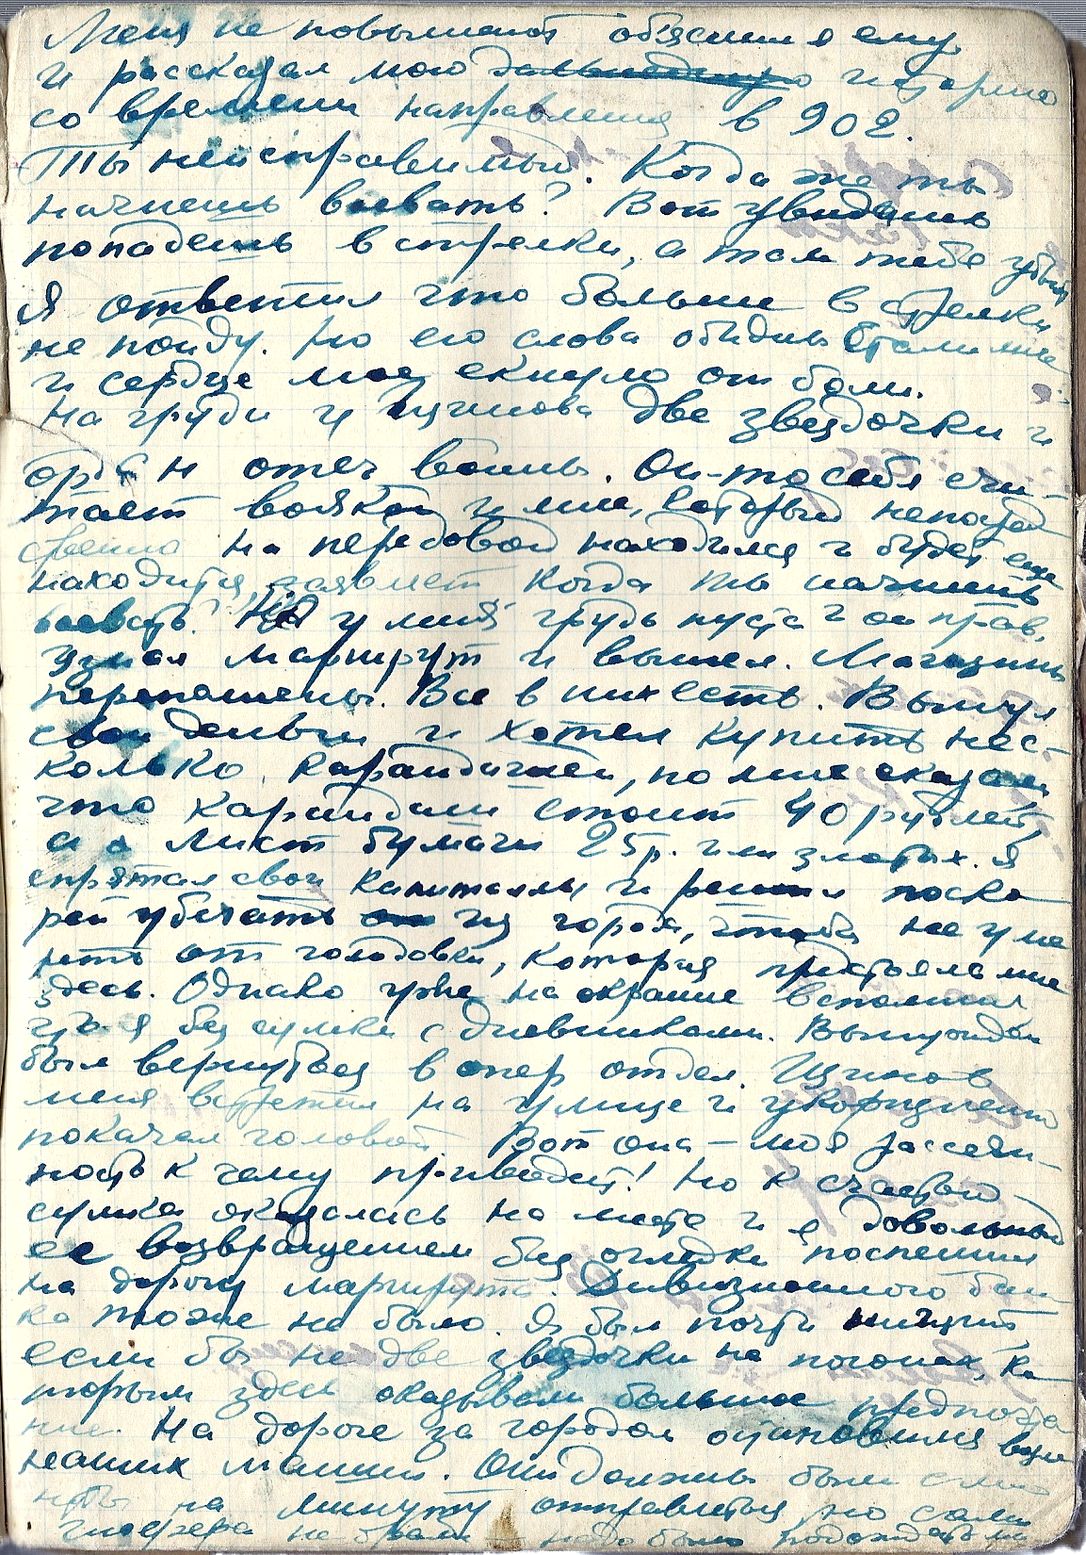 Меня не повышают объяснил я ему,
и рассказал мою историю
со времени направления в 902.
Ты неисправимый. Когда же ты
начнешь воевать? Вот увидишь
попадешь в стрелки, а там тебя убьют
Я ответил что больше в стрелки
не пойду. Но его слова обидны стали мне
и сердце мое екнуло от боли.
На груди у Щинова две звездочки и
орден отеч войны. Он-то себя счи-
тает воякой и мне, который непосред
ственно на передовой находился и будет еще
находится, заявляет когда ты начнешь
воевать? Но у меня грудь пуста и он прав.
Узнал маршрут и вышел. Магазины
переполнены. Все в них есть. Вынул
свои деньги и хотел купить нес-
колько карандашей, но мне сказали
что карандаш стоит 40 рублей,
а лист бумаги 25р. или злотых. Я
спрятал свои капиталы и решил поско
рей убежать из города, чтобы не уме
реть от голодовки, которая предстояла мне
здесь. Однако уже на окраине вспомнил
что я без сумки с дневниками. Вынужден
был вернуться в опер отдел. Щинов
меня встретил на улице и укоризненно
покачал головой Вот она – моя рассеян-
ность к чему приводит! Но к счастью
сумка оказалась на месте и я довольный
ее возвращением без оглядки поспешил
на дорогу маршрута. Дивизионного бан-
ка тоже не было. Я был почти нищий,
если бы не две звездочки на погонах, ко
торым здесь оказывали большое предпочте
ние. На дороге за городом остановился возле
наших машин. Они должны были с мину
ты на минуту отправиться но сами
шофера не брали – надо было подождать